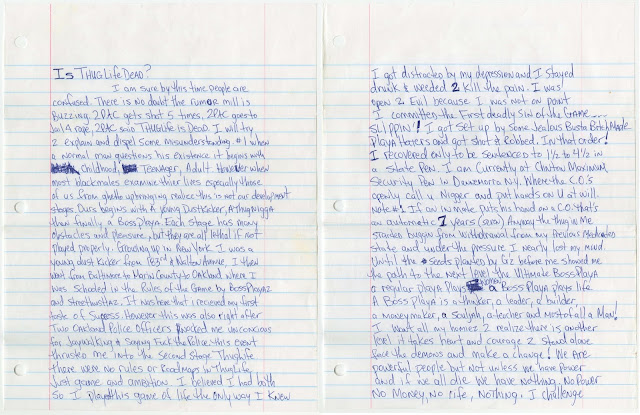 Is THUG Life DEAD?
I am sure by this time people are
confused. There is no doubt the rumor mill is
Buzzing. 2PAC gets shot 5 times, 2PAC goes to
Jail 4 rape, 2PAC said THUG Life is Dead. I will try
2 explain and dispel some misunderstanding. #1 when
a normal man questions his existence it begins with
Childhood, Teenager, Adult. However when
most blackmales examine thier lives especially those
of us from ghetto upbringing realize this is not our development
stages. Ours begins with A Young Dust Kicker, A Thug Nigga
then finally a Boss Playa. Each Stage has many
obstacles and pleasure, but they are all lethal if not
played properly. Growing up in New York I was a
young dust kicker from 183rd & Walton Avenue. I then
went from Baltimore to Marin County to Oakland where I
was Schooled in the Rules of the Game by Boss Playaz
and Street hustlaz. It was here that I recieved my first
taste of Success. However this was also right after
Two Oakland Police Officers knocked me unconcious
for JaywalKing & Singing Fuck the Police. This event
thrusted me into the Second Stage Thug Life
there were no rules or Roadmaps in Thug Life
Just game and ambition. I believed I had both
So I played this game of life the only way I knew
I got distracted by my depression and I stayed
drunk & weeded 2 kill the pain. I was
open 2 Evil because I was not on point
I committed the First deadly Sin of the Game
SLIPPIN'! I got set up by Some Jealous Busta Bitch Made
Playa Haters and got shot & Robbed. In that order!
I recovered only to be sentenced to 1 1/2 to 4 1/2 in
a State Pen. I am Currently at Clinton Maximum
Security Pen in Dannemora NY. Where the C.O.'s
openly call u Nigger and put hands on U at will.
Note #1 if an inmate puts his hand on a CO. that's
an automatic 7 years (seven) Anyway the thug in me
started began from withdrawal from my previous
state and under the pressure I nearly lost my mind.
Until the seeds planted by Gz before me showed me
the path to the next level the Ultimate Boss Playa
a regular playa plays a Boss Playa plays life
A Boss Playa is a thinker, a leader, a builder,
a moneymaker, a Souljah, a teacher and most of all a Man!
I want all my homiez 2 realize there is another
level it takes heart and courage 2 stand alone
face the demons and make a change! We are
powerful people but not unless we have power
and if we all die we have nothing. No Power
No Money, No life, Nothing. I challenge